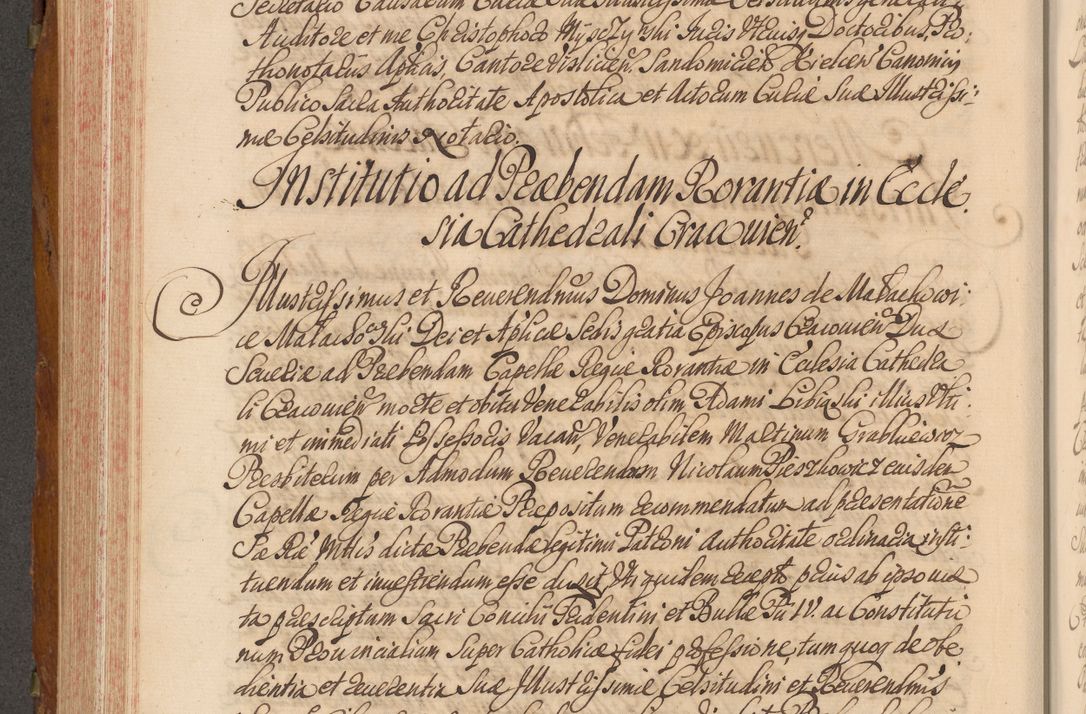 Auditore et me Christophoro Myszynski Juris Utriusq Doctoribus, Pro:
thonotarius Aplicis, Cantore Vislicien Sandomirien Kielcen Canonicis
Publico Sacra Authoritate Apostolica et Actorum Curiæ Suæ Illustrissi:
mæ Celsitudinis Notario.
Institutio ad Præbendam Rorantiæ in Eccle:
sia Cathedrali Cracovien.
Illustrissimus et Reverendmus Dominus Joannes de Małachowi:
ce Małachowski Dei et Aplicæ Sedis gratia Episcopus Cracovien Dux
Severiæ ad Præbendam Capellæ Regiæ Rorantiæ in Ecclesia Cathedra
li Cracovien morte et obitu Venerabilis olim Adami Libuski illius Ulti:
mi et immediati Possessoris Vacan, Venerabilem Martinum
Presbiterum per Admodum Reverendum Nicolaum Pieszkowicz eiusdem
Capellæ Regiæ Rorantiæ Præpositum recommendatum ad præsentatione
Sæ Ræ Mttis dictæ Præbendæ legitimi Patroni Authoritate ordinaria insti:
tuendum et investiendum esse duxit Uti quidem recepto prius ab ipso iux
ta præscriptum Sacri Concilii Tridentini et Bullæ Pii IV. ac Constitutio
num Provincialium Super Catholicæ fidei professione, tum quoq de obe:
dientia et reverentia Suæ Illustrissimæ Celsitudini et Reverendmis